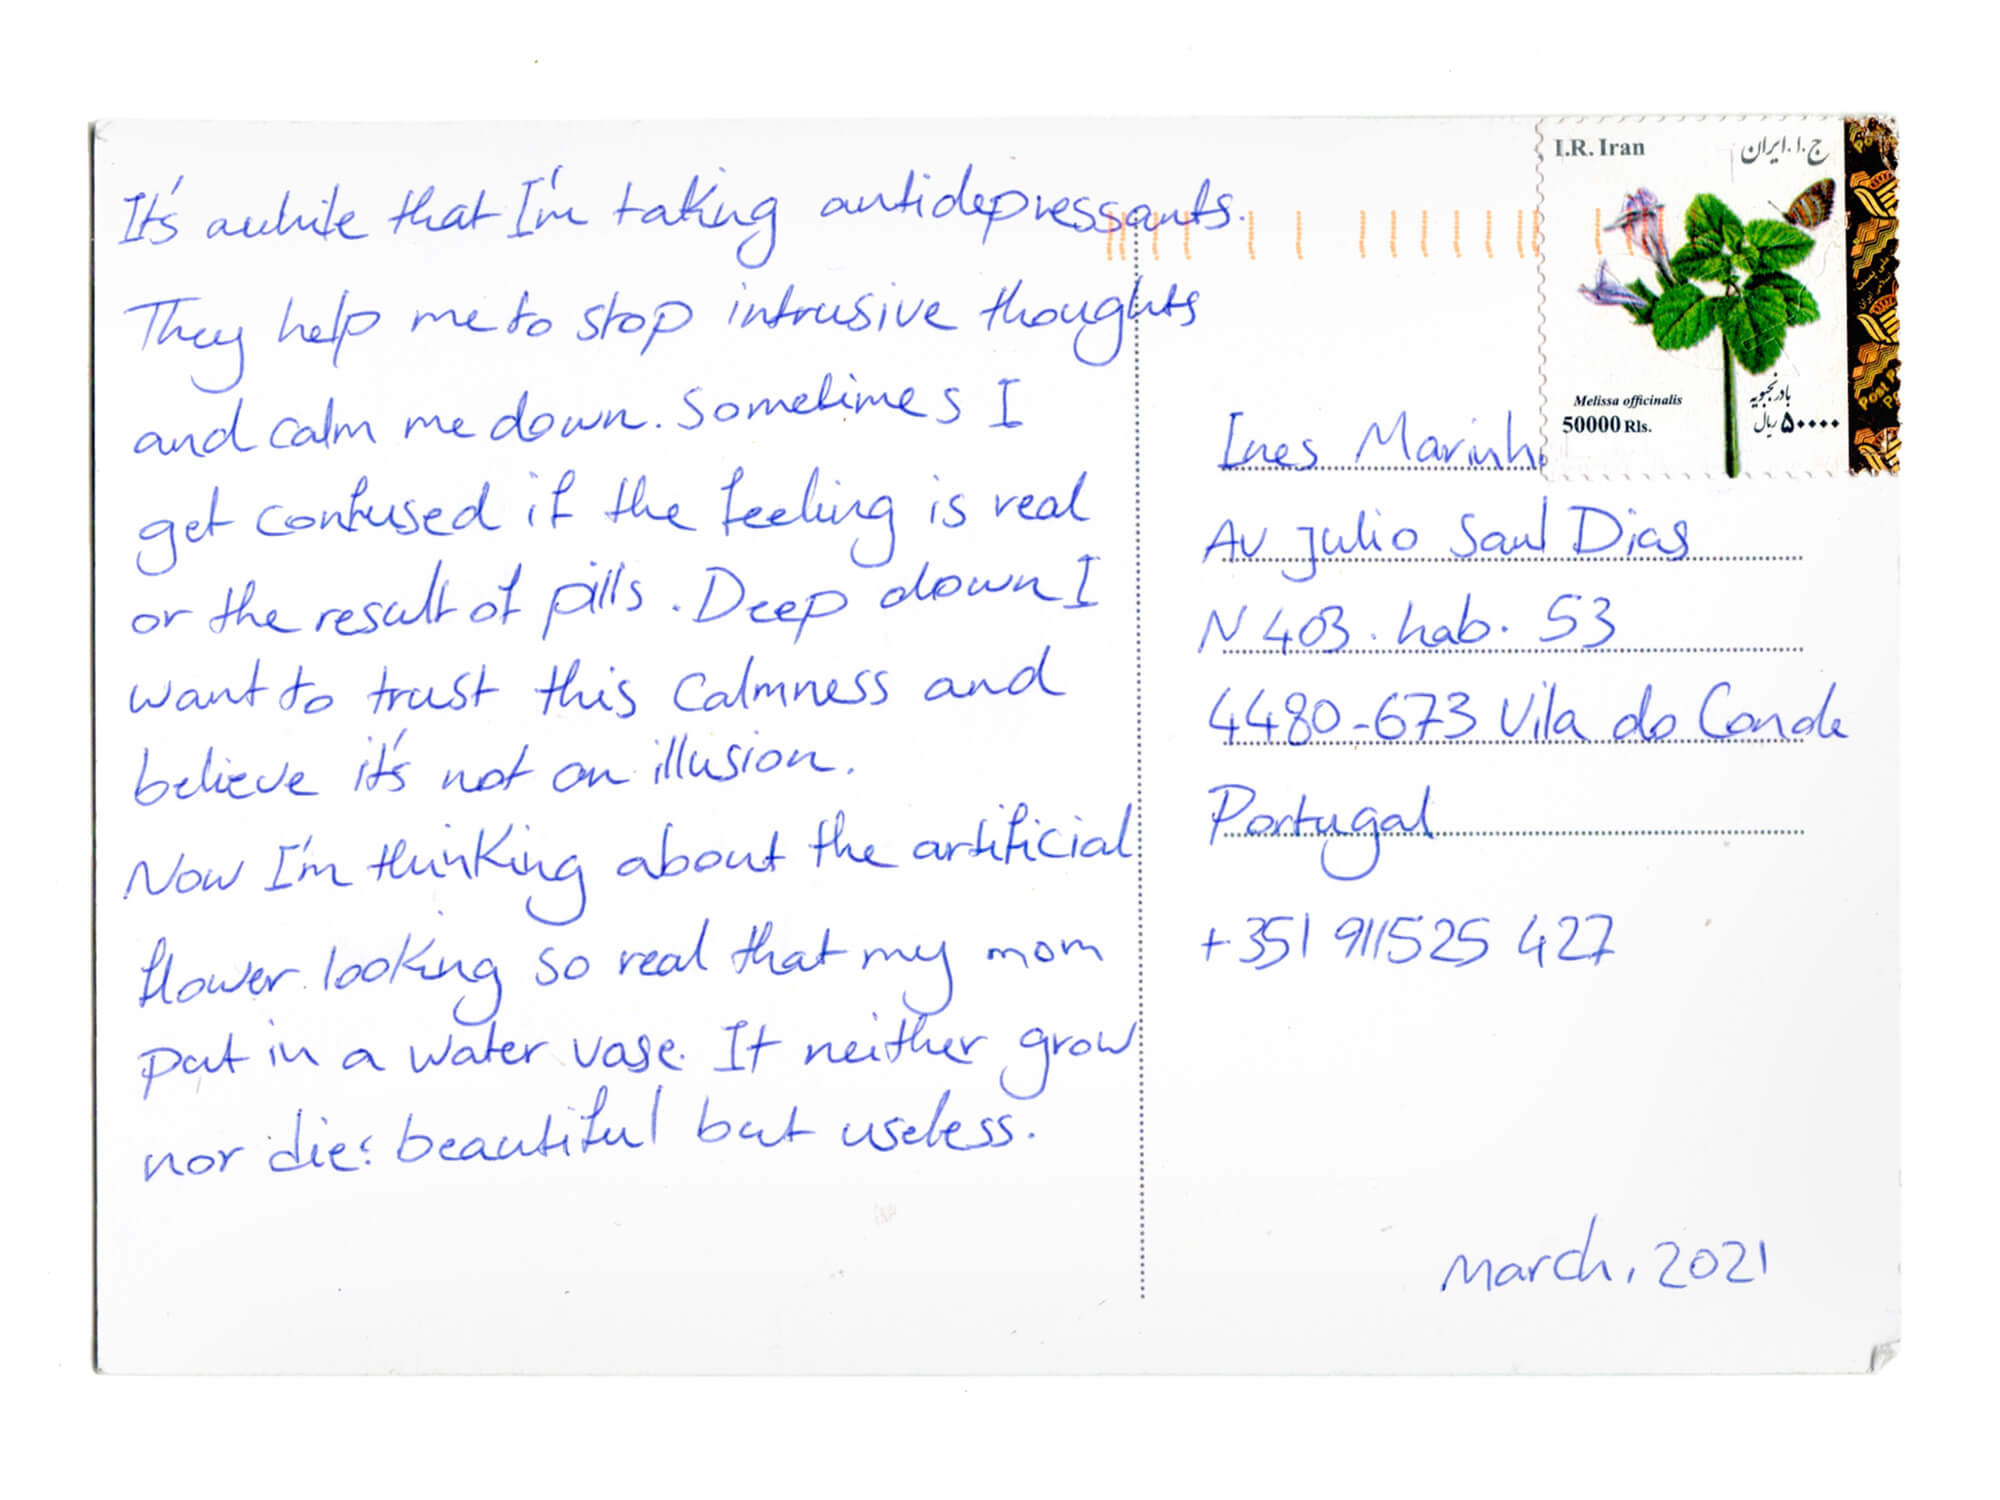 It's awhile that I'm taking antidepressants.
They help me to stop intrusive thoughts
and calm me down. Sometimes I
get confused if the feeling is real
or the result of pills. Deep down I
want to trust this calmness and
believe it's not an illusion.
Now I'm thinking about the artificial
flower looking so real that my mom
put in a water vase. It neither grow
nor die: beautiful but useless.
I.R. Iran
ج.ا.ایران
Melissa officinalis
بادرنجبویه
50000 Rls.
۵۰۰۰۰ ریال
Ines Marinh
Av Julio Saul Dias
N 403. hab. 53
4480-673 Vila do Conde
Portugal
+351 911525 427
March, 2021